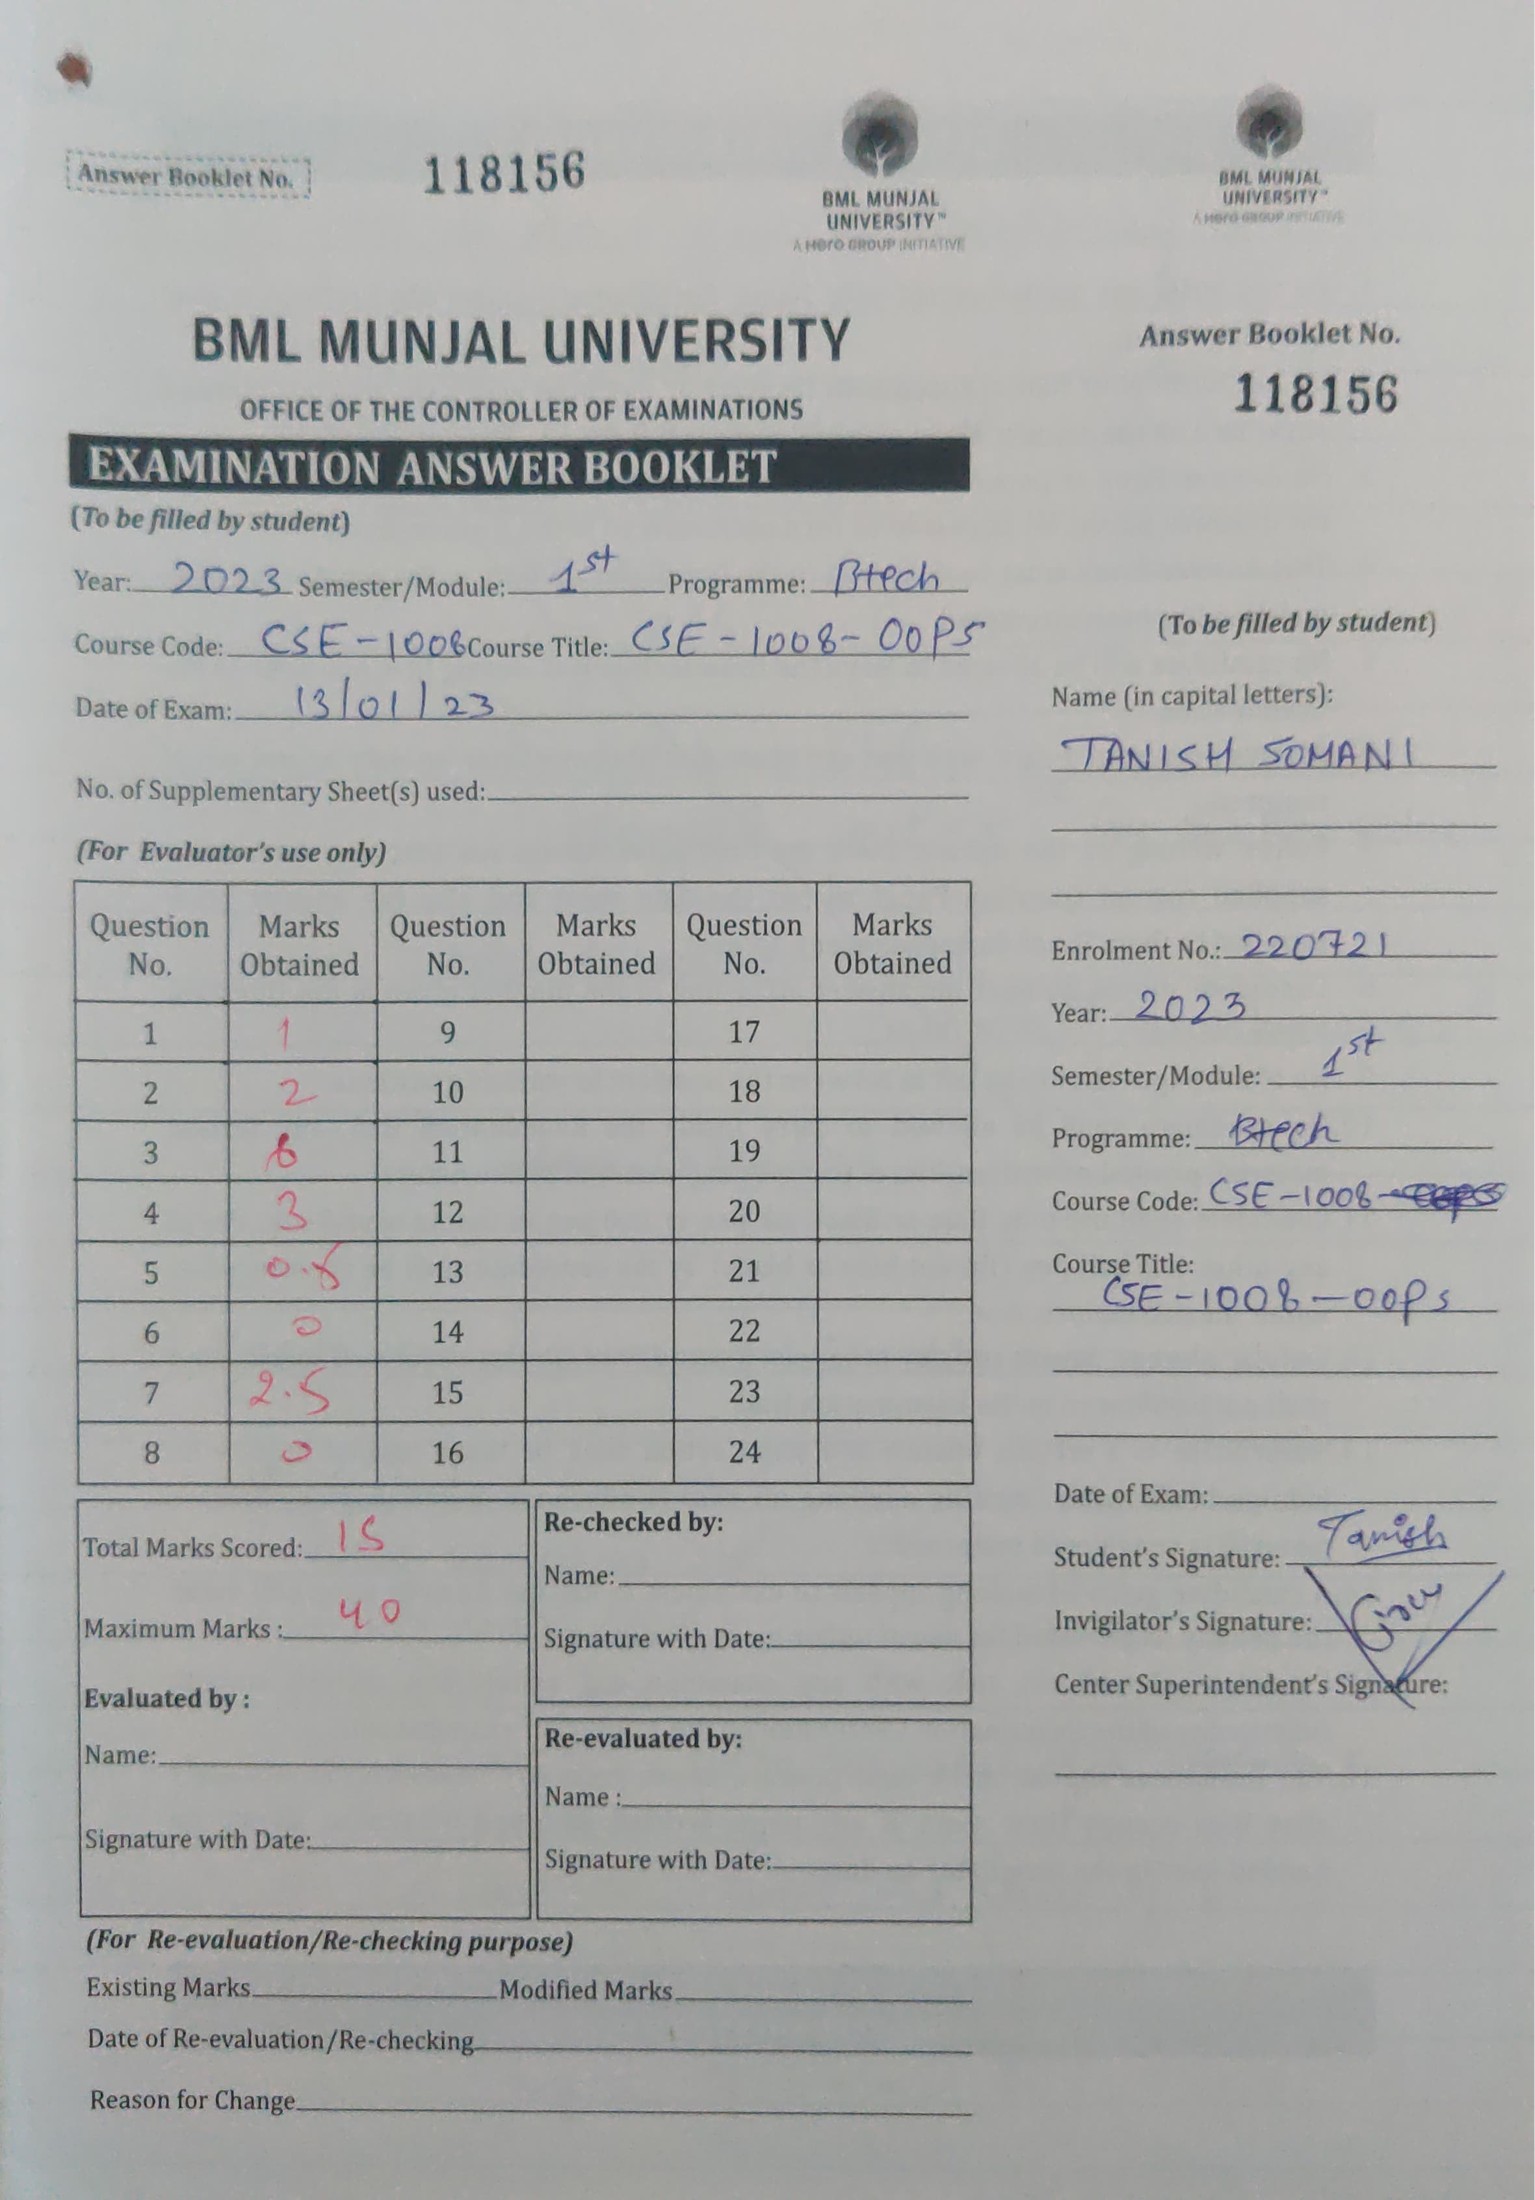 Answer Booklet No.
118156
BML MUNJAL
UNIVERSITY™
A Hero GROUP INITIATIVE
BML MUNJAL
UNIVERSITY™
A Hero GROUP INITIATIVE
BML MUNJAL UNIVERSITY
OFFICE OF THE CONTROLLER OF EXAMINATIONS
EXAMINATION ANSWER BOOKLET
(To be filled by student)
Year: 2023 Semester/Module: 1st Programme: Btech
Course Code: CSE-1008 Course Title: CSE-1008-OOPS
Date of Exam: 13/01/23
No. of Supplementary Sheet(s) used:
(For Evaluator's use only)
Question No. Marks Obtained Question No. Marks Obtained Question No. Marks Obtained
1 1 9 17
2 2 10 18
3 6 11 19
4 3 12 20
5 0.5 13 21
6 0 14 22
7 2.5 15 23
8 0 16 24
Total Marks Scored: 15
Maximum Marks : 40
Evaluated by :
Name:
Signature with Date:
Re-checked by:
Name:
Signature with Date:
Re-evaluated by:
Name :
Signature with Date:
(For Re-evaluation/Re-checking purpose)
Existing Marks Modified Marks
Date of Re-evaluation/Re-checking
Reason for Change
Answer Booklet No.
118156
(To be filled by student)
Name (in capital letters):
TANISH SOMANI
Enrolment No.: 220721
Year: 2023
Semester/Module: 1st
Programme: Btech
Course Code: CSE-1008-
Course Title:
CSE-1008-OOPs
Date of Exam:
Student's Signature: Tanish
Invigilator's Signature:
Center Superintendent's Signature: